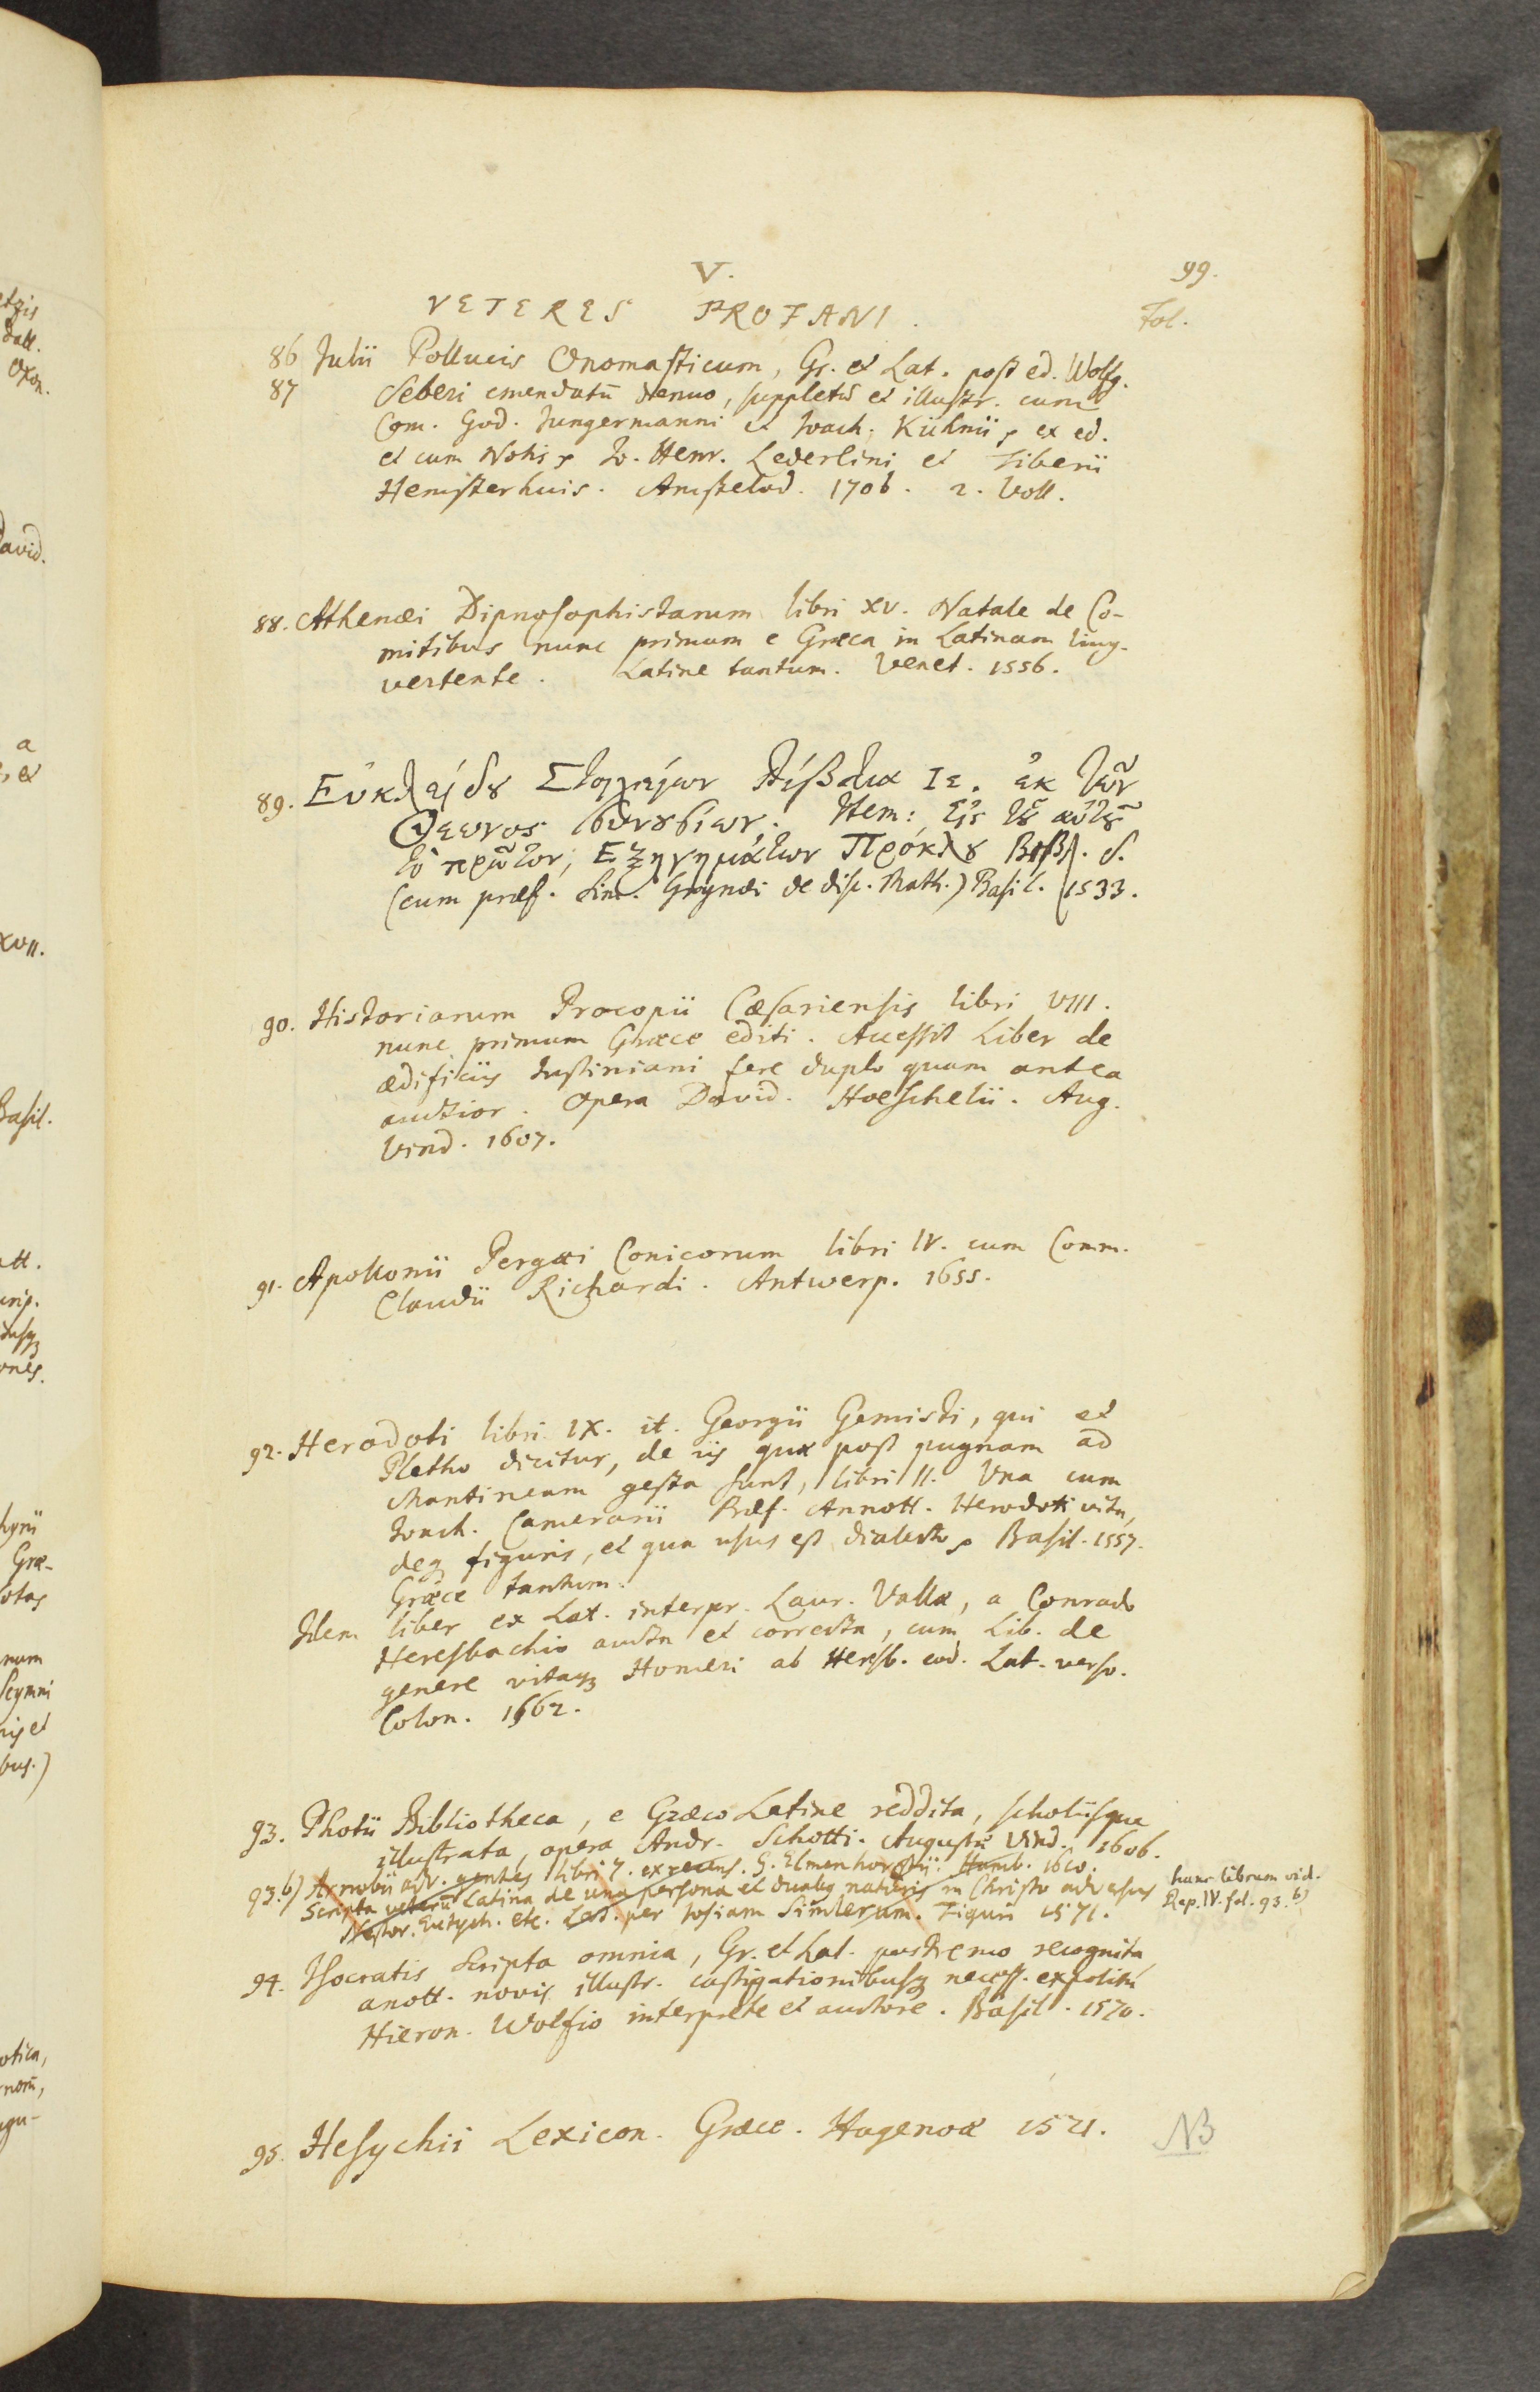 V.
99.
VETERES PROFANI.
Fol.
86 Julii Pollucis Onomasticum, Gr. et Lat. post ed. Wolfg.
87 Seberi emendatū denuo, suppletū et illustr. cum
Com. God. Jungermanni et Joach. Kühnii, ex ed.
et cum Notis Jo. Henr. Lederlini et Tiberii
Hemsterhuis. Amstelod. 1706. 2. Voll.
88. Athenæi Dipnosophistarum libri XV. Natale de Co-
mitibus nunc primum e Græca in Latinam ling.
vertente. Latine tantum. Venet. 1556.
89. Εὐκλείδου Στοιχείων Βίβλια Ιε. ἐκ τῶν
Θεωνος συνουσίων. Item: Εἰς τοῦ αὐτοῦ
τὸ πρῶτον, Εξηγημάτων Πρόκλου Βιβλ. δ.
(cum præf. Sim. Grynæi de disc. Math.) Basil. 1533.
90. Historiarum Procopii Cæsariensis libri VIII.
nunc primum Græce editi. Accessit Liber de
ædificiis Justiniani fere duplo quam antea
auctior. Opera David. Hoeschelii. Aug.
Vind. 1607.
91. Apollonii Pergæi Conicorum libri IV. cum Comm.
Claudii Richardi. Antwerp. 1655.
92. Herodoti libri IX. it. Georgii Gemisti, qui et
Pletho dicitur, de iis quæ post pugnam ad
Mantineam gesta sunt, libri II. Una cum
Joach. Camerarii Præf. Annott. Herodoti vita,
deq figuris, et qua usus est dialecto Basil. 1557.
Græce tantum.
Idem liber ex Lat. interpr. Laur. Vallæ, a Conrado
Heresbachio aucta et correcta, cum Lib. de
genere vitaq Homeri ab Heresb. eod. Lat. verso.
Colon. 1562.
93. Photii Bibliotheca, e Græco Latine reddita, scholiisque
illustrata, opera Andr. Schotti. Augustæ Vind. 1606.
93.b) Arnobii adv. gentes libri 7. ex recens. G. Elmenhorstii. Hamb. 1610.
Scripta veterū Latina de una persona et duabq naturis in Christo adversus
Nestor. Eutych. etc. Lat. per Josiam Simlerum. Tiguri 1571.
hunc librum vid.
Rep. IV. fol. 93.b)
94. Isocratis Scripta omnia, Gr. et Lat. postremo recognita,
anott. novis illustr. castigationibusq necess. expolita
Hieron. Wolfio interprete et auctore. Basil. 1570.
95. Hesychii Lexicon. Græce. Hagenoæ 1521.
NB